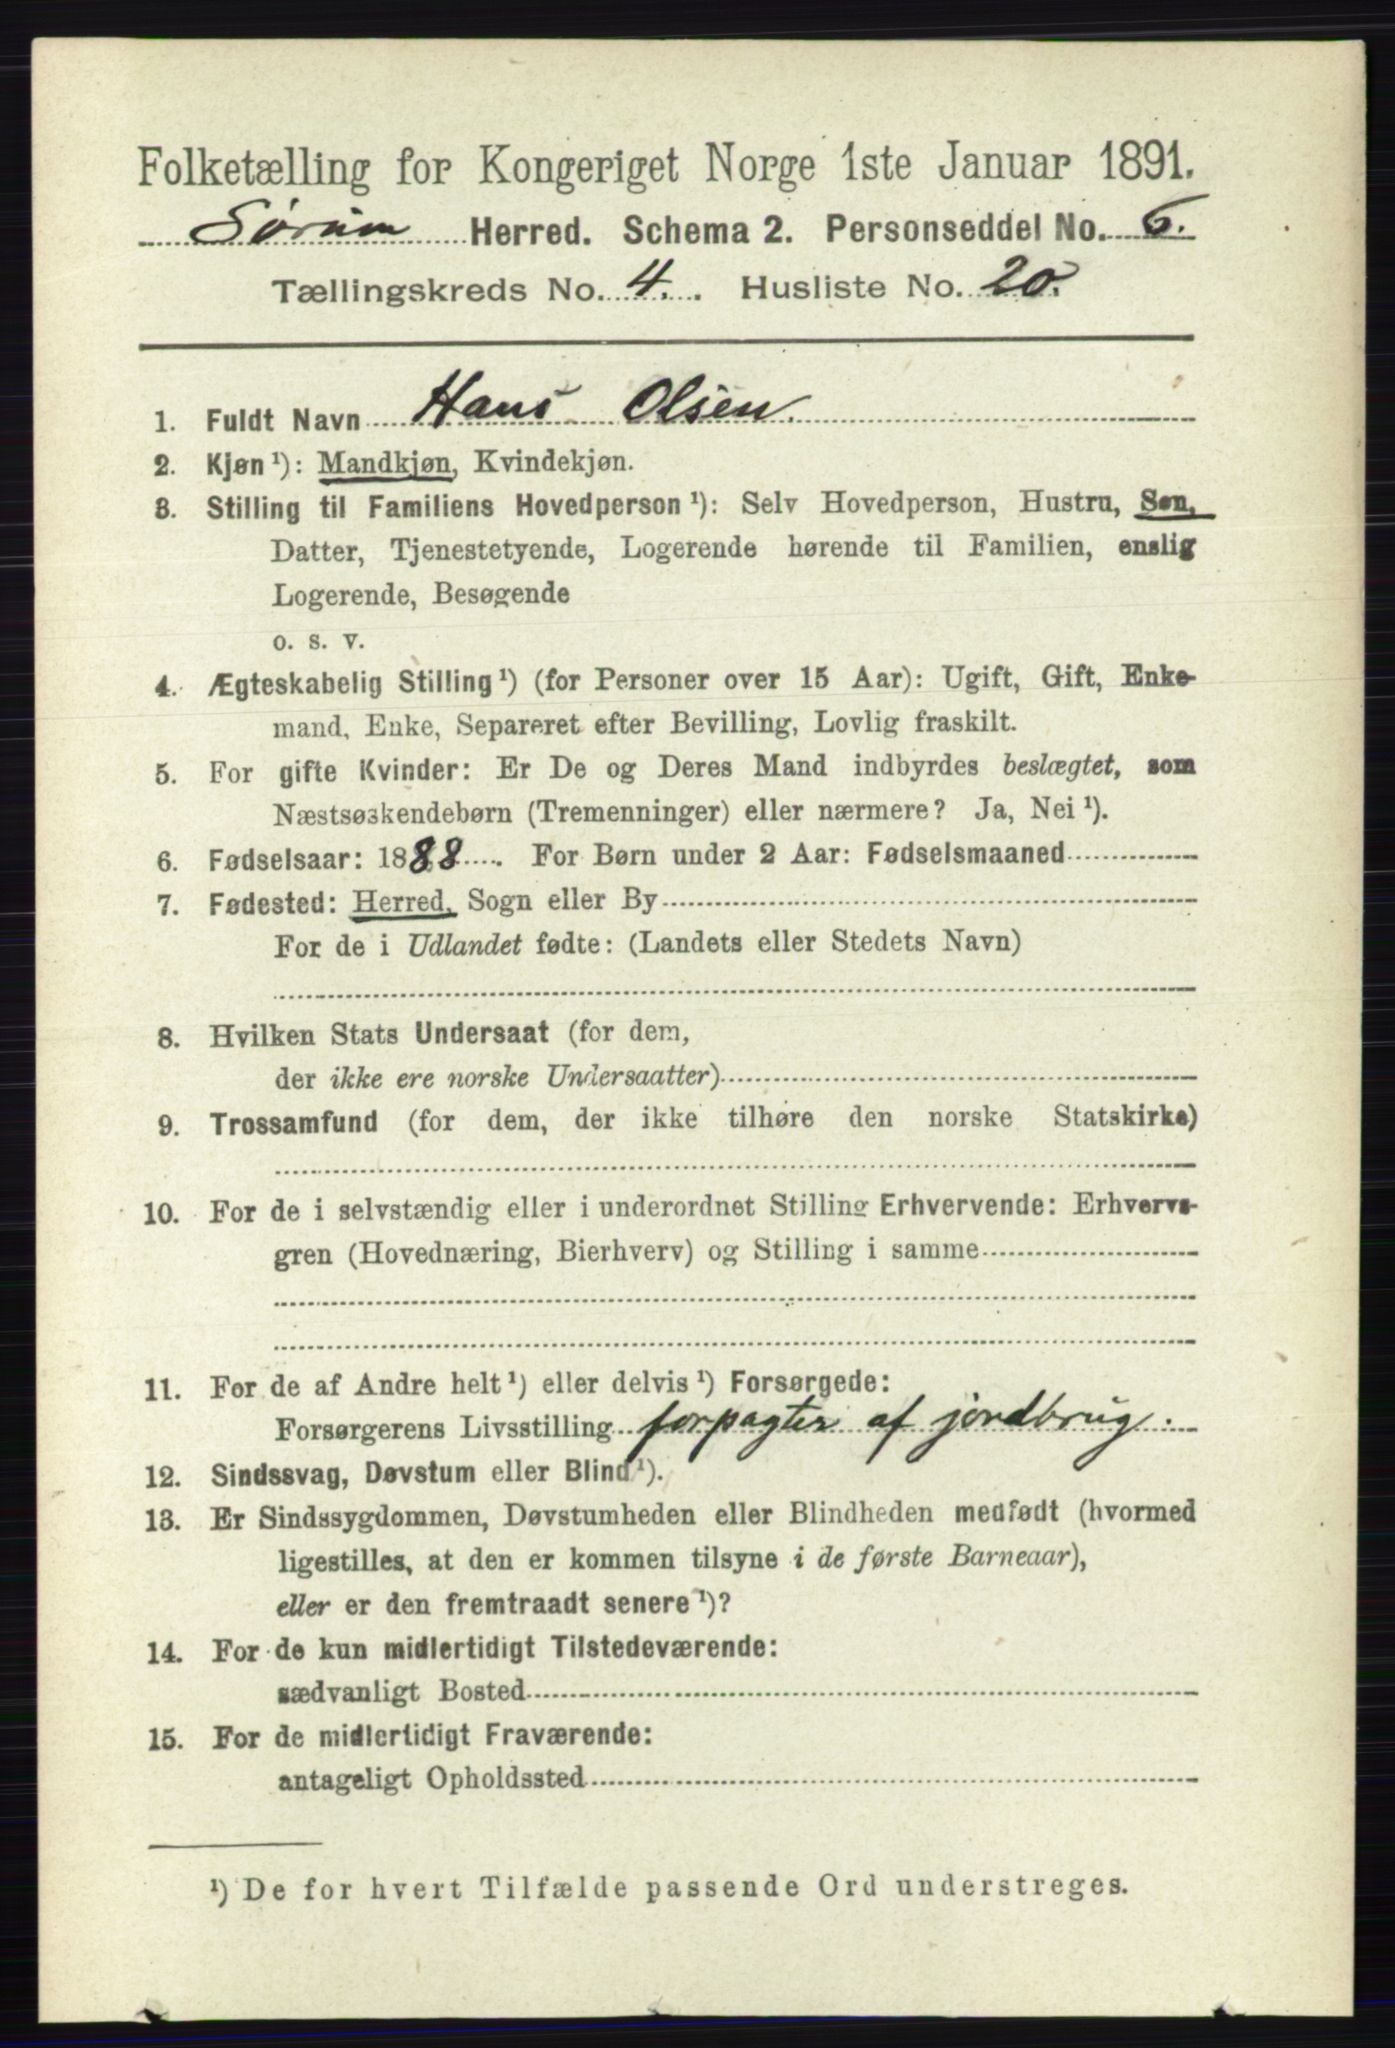 Folketælling for Kongeriget Norge 1ste Januar 1891.
Sørum Herred. Schema 2. Personseddel No. 6.
Tællingskreds No. 4. Husliste No. 20.
1. Fuldt Navn Hans Olsen.
2. Kjøn¹): Mandkjøn, Kvindekjøn.
3. Stilling til Familiens Hovedperson¹): Selv Hovedperson, Hustru, Søn,
Datter, Tjenestetyende, Logerende hørende til Familien, enslig
Logerende, Besøgende
o. s. v.
4. Ægteskabelig Stilling¹) (for Personer over 15 Aar): Ugift, Gift, Enke-
mand, Enke, Separeret efter Bevilling, Lovlig fraskilt.
5. For gifte Kvinder: Er De og Deres Mand indbyrdes beslægtet, som
Næstsøskendebørn (Tremenninger) eller nærmere? Ja, Nei¹).
6. Fødselsaar: 1888. For Børn under 2 Aar: Fødselsmaaned
7. Fødested: Herred, Sogn eller By
For de i Udlandet fødte: (Landets eller Stedets Navn)
8. Hvilken Stats Undersaat (for dem,
der ikke ere norske Undersaatter)
9. Trossamfund (for dem, der ikke tilhøre den norske Statskirke)
10. For de i selvstændig eller i underordnet Stilling Erhvervende: Erhvervs-
gren (Hovednæring, Bierhverv) og Stilling i samme
11. For de af Andre helt¹) eller delvis¹) Forsørgede:
Forsørgerens Livsstilling forpagter af jordbrug.
12. Sindssvag, Døvstum eller Blind¹).
13. Er Sindssygdommen, Døvstumheden eller Blindheden medfødt (hvormed
ligestilles, at den er kommen tilsyne i de første Barneaar),
eller er den fremtraadt senere¹)?
14. For de kun midlertidigt Tilstedeværende:
sædvanligt Bosted
15. For de midlertidigt Fraværende:
antageligt Opholdssted
¹) De for hvert Tilfælde passende Ord understreges.